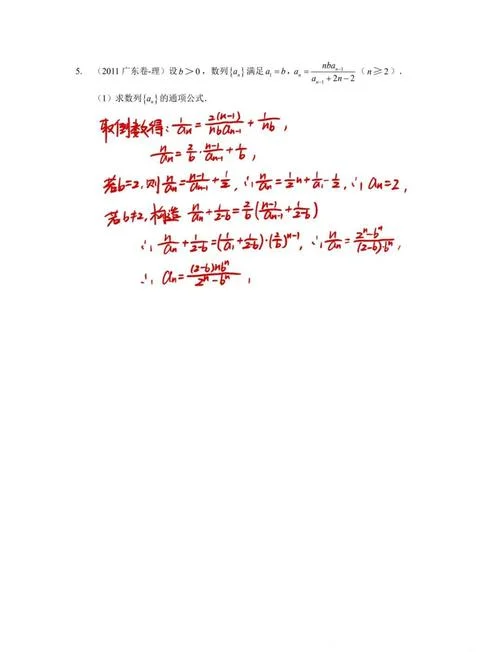 5. （2011 广东卷-理）设 b＞0，数列{aₙ}满足 a₁=b，aₙ=nbaₙ₋₁/(aₙ₋₁+2n−2)（n≥2）.
（1）求数列{aₙ}的通项公式.
取倒数得: 1/aₙ=2(n-1)/(nbaₙ₋₁)+1/(nb),
n/aₙ=2/b·(n-1)/aₙ₋₁+1/b,
若b=2,则 n/aₙ=(n-1)/aₙ₋₁+1/2, ∴ n/aₙ=1/2n+1/a₁-1/2, ∴ aₙ=2,
若b≠2, 构造 n/aₙ+1/(2-b)=2/b((n-1)/aₙ₋₁+1/(2-b))
∴ n/aₙ+1/(2-b)=(1/a₁+1/(2-b))·(2/b)ⁿ⁻¹, ∴ n/aₙ=(2ⁿ-bⁿ)/((2-b)·bⁿ),
∴ aₙ=(2-b)nbⁿ/(2ⁿ-bⁿ),